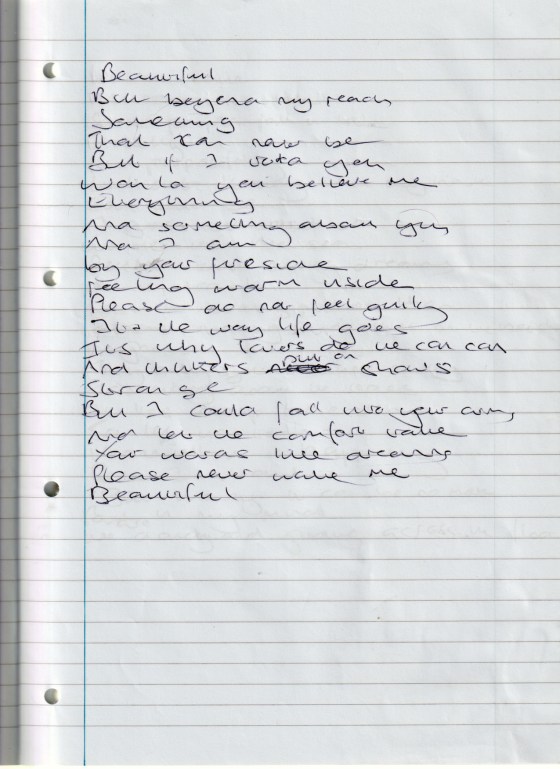 Beautiful
But beyond my reach
Something
That can now be
But if I told you
Would you believe me
Everything
And something about you
And I am
by your fireside
Feeling warm inside
Please do not feel guilty
It's the way life goes
It's why lovers do the can can
And put on shows
Strange
But I could fall into your arms
And let the comfort take
Your words like dreams
Please never wake me
Beautiful